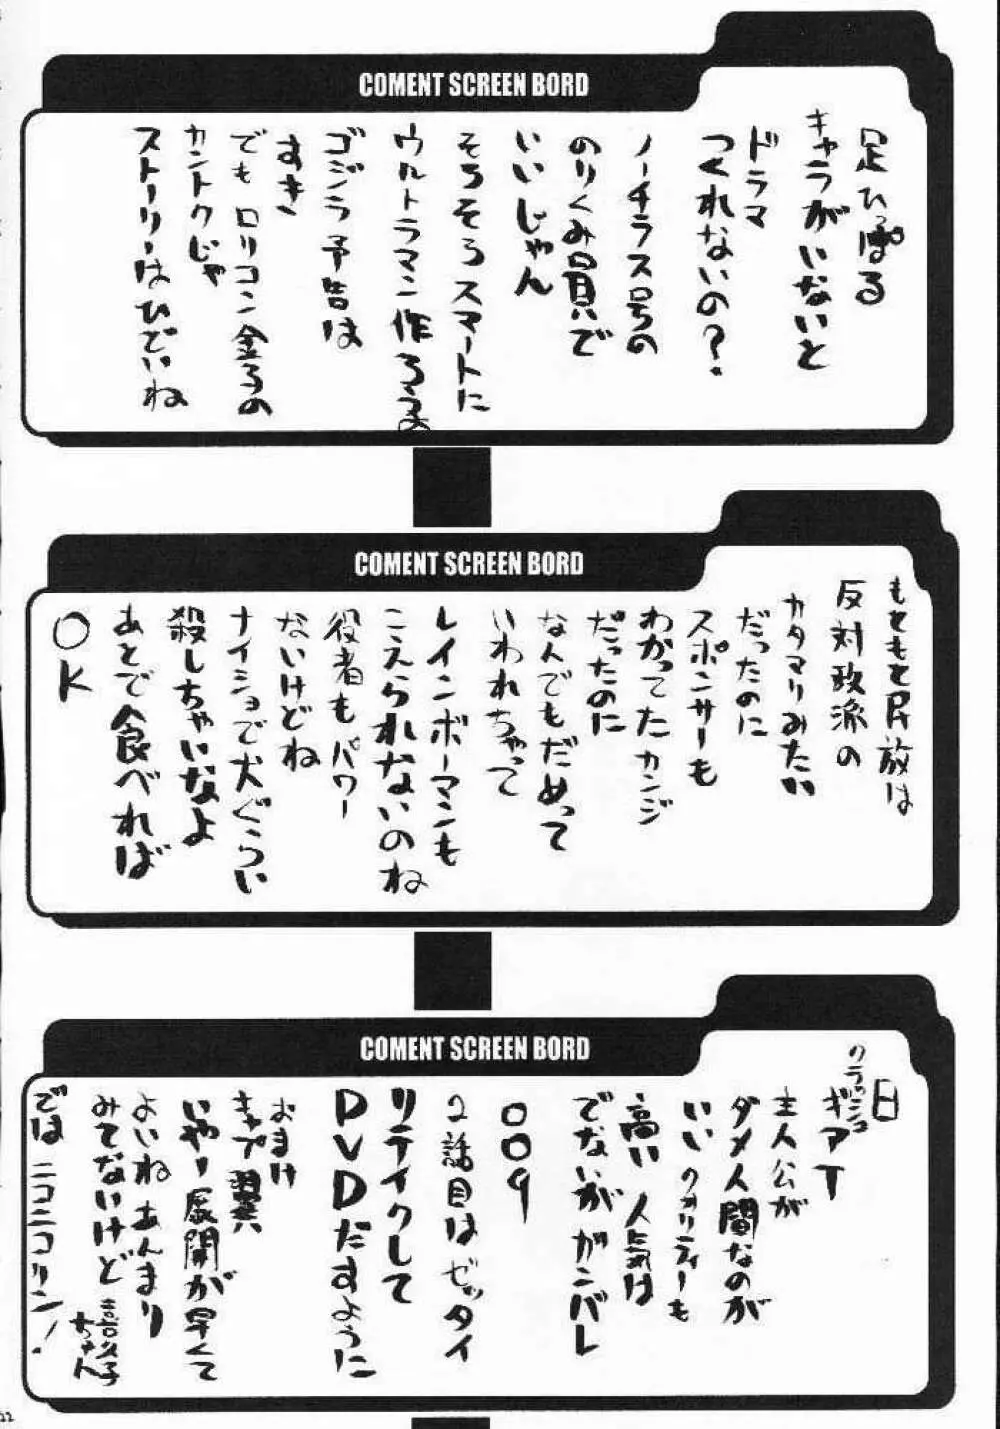 COMENT SCREEN BORD
足ひっぱる
キャラがいないと
ドラマ
つくれないの?
ノーチラス号の
のりくみ員で
いいじゃん
そろそろスマートに
ウルトラマン作ろうよ
ゴジラ予告は
すき
でもロリコン金子の
カントクじゃ
ストーリーはひどいね
COMENT SCREEN BORD
もともと民放は
反対政派の
カタマリみたい
だったのに
スポンサーも
わかってたカンジ
だったのに
なんでもだめって
いわれちゃって
レインボーマンも
こえられないのね
役者もパワー
ないけどね
ナイショで犬ぐらい
殺しちゃいなよ
あとで食べれば
OK
COMENT SCREEN BORD
日
クラッシュ
ギアT
主人公が
ダメ人間なのが
いい クオリティーも
高い 人気は
でないが ガンバレ
009
2話目はゼッタイ
リテイクして
DVDだすように
おまけ
キャプ翼
いやー展開が早くて
よいね あんまり
みてないけど
ちゃん
では ニコニコリン!
22